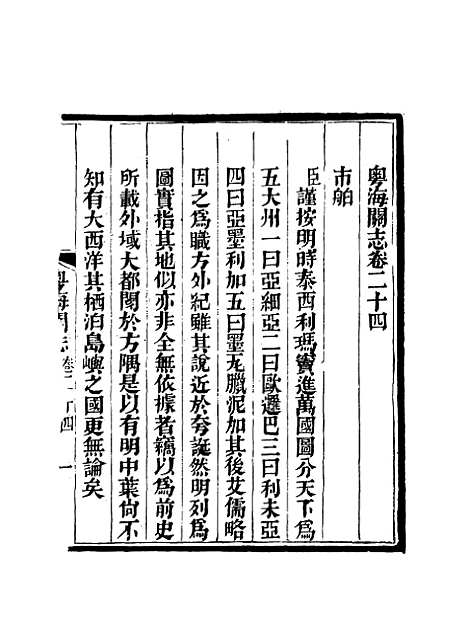 粤海關志卷二十四
市舶
臣謹按明時泰西利瑪竇進萬國圖分天下爲
五大州一曰亞細亞二曰歐邏巴三曰利未亞
四曰亞墨利加五曰墨瓦臘泥加其後艾儒略
因之爲職方外紀雖其說近於夸誕然明列爲
圖實指其地似亦非全無依據者竊以爲前史
所載外域大都閡於方隅是以有明中葉尙不
知有大西洋其栖泊島嶼之國更無論矣
粤海關志 卷二十四 一